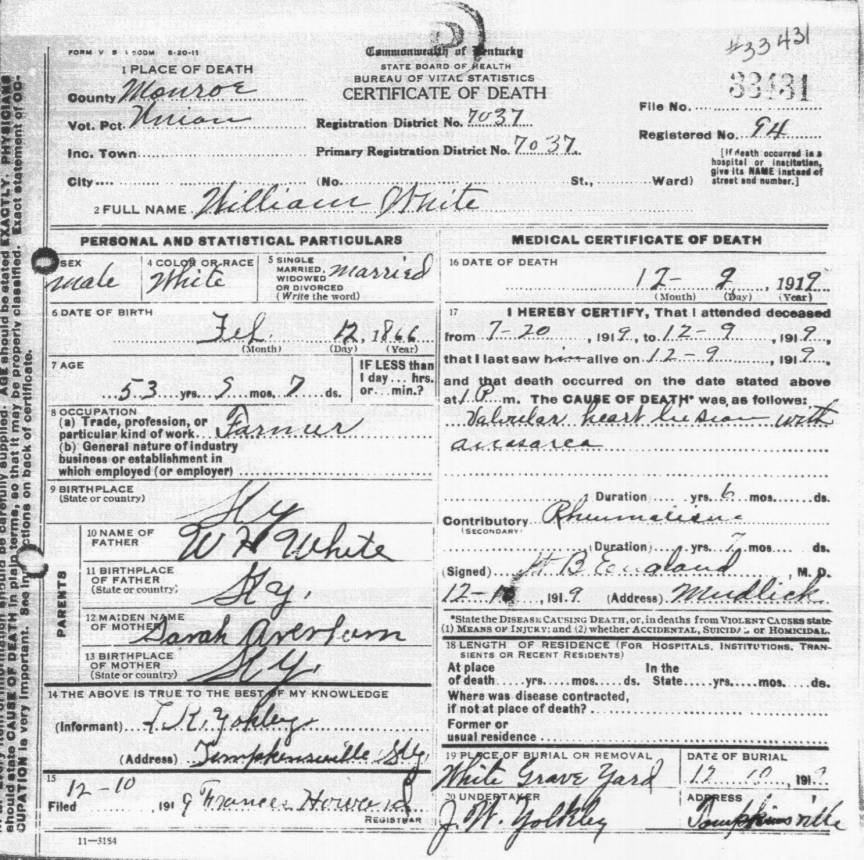 FORM V S 1 500M 6-20-11
Commonwealth of Kentucky
STATE BOARD OF HEALTH
BUREAU OF VITAL STATISTICS
CERTIFICATE OF DEATH
#33431
33431
File No.
Registered No. 94
[If death occurred in a hospital or institution, give its NAME instead of street and number.]
1 PLACE OF DEATH
County Monroe
Vot. Pct. Union
Inc. Town
City
Registration District No. 7037
Primary Registration District No. 7037
(No. St., Ward)
2 FULL NAME William White
PERSONAL AND STATISTICAL PARTICULARS
SEX
Male
4 COLOR OR RACE
White
5 SINGLE
MARRIED,
WIDOWED
OR DIVORCED
(Write the word)
Married
6 DATE OF BIRTH
Feb 12, 1866
(Month) (Day) (Year)
7 AGE
53 yrs. 9 mos. 7 ds.
IF LESS than
1 day... hrs.
or... min.?
8 OCCUPATION
(a) Trade, profession, or
particular kind of work Farmer
(b) General nature of industry
business or establishment in
which employed (or employer)
9 BIRTHPLACE
(State or country)
Ky
PARENTS
10 NAME OF
FATHER
W H White
11 BIRTHPLACE
OF FATHER
(State or country)
Ky.
12 MAIDEN NAME
OF MOTHER
Sarah
13 BIRTHPLACE
OF MOTHER
(State or country)
Ky.
14 THE ABOVE IS TRUE TO THE BEST OF MY KNOWLEDGE
(Informant) Yokley
(Address) Tompkinsville Ky.
15
Filed 12-10 1919 Frances Howard
REGISTRAR
11-3184
MEDICAL CERTIFICATE OF DEATH
16 DATE OF DEATH
12- 9, 1919
(Month) (Day) (Year)
17 I HEREBY CERTIFY, That I attended deceased
from 7-20, 1919, to 12-9, 1919,
that I last saw him alive on 12-9, 1919,
and that death occurred on the date stated above
at 1 P m. The CAUSE OF DEATH* was as follows:
Valvular heart lesion with
anasarca
Duration yrs. 6 mos. ds.
Contributory Rheumatism
(SECONDARY)
(Duration) yrs. 7 mos ds.
(Signed) B England, M. D.
12-10, 1919 (Address) Mudlick
*State the DISEASE CAUSING DEATH, or, in deaths from VIOLENT CAUSES state
(1) MEANS OF INJURY; and (2) whether ACCIDENTAL, SUICIDAL or HOMICIDAL.
18 LENGTH OF RESIDENCE (FOR HOSPITALS, INSTITUTIONS, TRAN-
SIENTS OR RECENT RESIDENTS)
At place In the
of death yrs. mos. ds. State yrs. mos. ds.
Where was disease contracted,
if not at place of death?
Former or
usual residence
19 PLACE OF BURIAL OR REMOVAL
White Grave Yard
DATE OF BURIAL
12 10, 1919
20 UNDERTAKER
J. W. Yolkley
ADDRESS
Tompkinsville